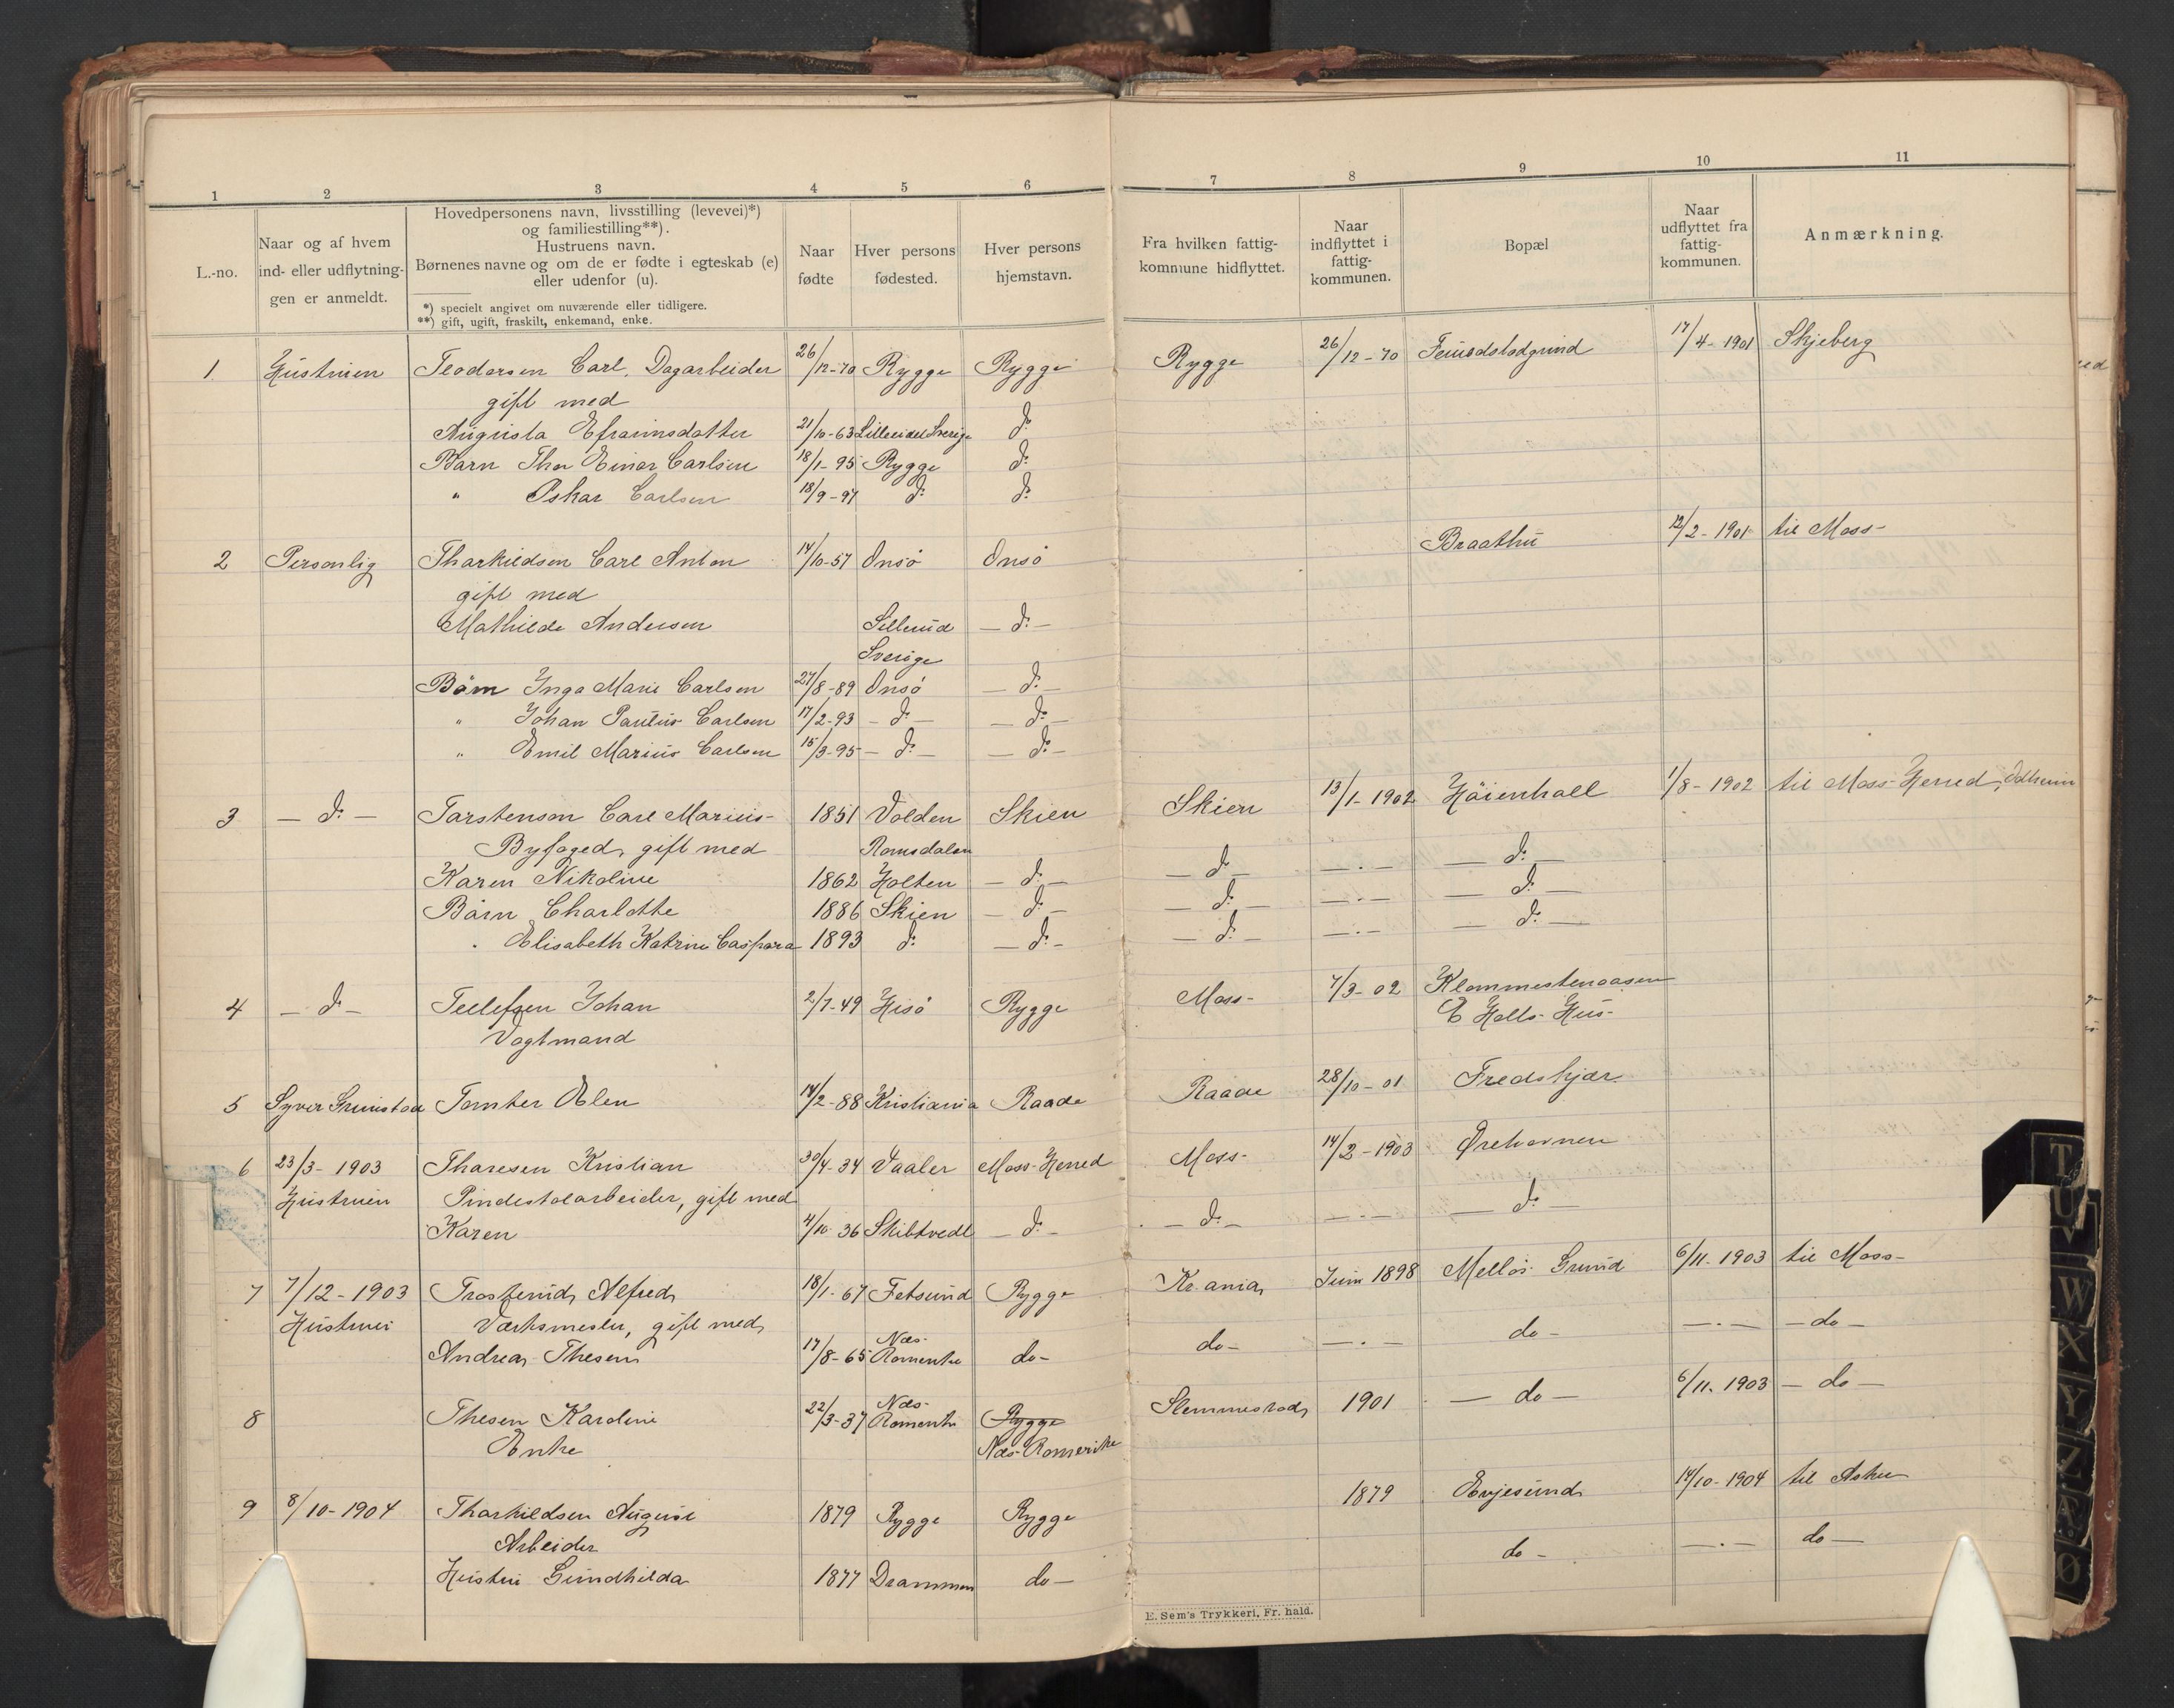 1 2 3 4 5 6 7 8 9 10 11
L.-no.
Naar og af hvem
ind- eller udflytnin-
gen er anmeldt.
Hovedpersonens navn, livsstilling (levevei)*)
og familiestilling**).
Hustruens navn.
Børnenes navne og om de er fødte i egteskab (e)
eller udenfor (u).
*) specielt angivet om nuværende eller tidligere.
**) gift, ugift, fraskilt, enkemand, enke.
Naar
fødte
Hver persons
fødested.
Hver persons
hjemstavn.
Fra hvilken fattig-
kommune hidflyttet.
Naar
indflyttet i
fattig-
kommunen.
Bopæl
Naar
udflyttet fra
fattig-
kommunen.
Anmærkning.
1 Hustruen Teodorsen Carl, Dagarbeider 26/12-70 Rygge Rygge Rygge 26/12-70 17/4-1901 Skjeberg
gift med
Augusta Efraimsdatter 21/10-63 Sverige do
Barn Thor Einar Carlsen 18/1-95 Rygge do
" Oskar Carlsen 18/9-97 do do
2 Personlig Tharkildsen Carl Anton 14/10-57 Onsö Onsö Braathu 12/2-1901 til Moss
gift med
Mathilde Andersen Sillerud - do -
Sverige
Börn Inga Marie Carlsen 27/8-89 Onsö - do -
" Johan Paulus Carlsen 17/2-93 - do - - do -
" Emil Marius Carlsen 15/3-95 - do - - do -
3 - do - Torstensen Carl Marius 1851 Volden Skien Skien 13/1-1902 Höienhall 1/8-1902 til Moss Herred,
Byfoged, gift med Romsdalen
Karen Nikoline 1862 Holten - do - - do - - . - - do -
Börn Charlotte 1886 Skien - do - - do - - . - - do -
" Elisabeth Katrine Caspara 1893 do - do - - do - - . - - do -
4 - do - Tellefsen Johan 2/7-49 Hisö Rygge Moss 7/3-02 Klommestenaasen
Vagtmand E Holls Hus
5 Syver Grimstad Tomter Elen 14/2-88 Kristiania Raade Raade 28/10-01 Fredskjær
6 23/3-1903 Thoresen Kristian 30/4-34 Vaaler Moss Herred Moss 14/2-1903 Örehavnen
Hustruen Pindestolarbeider, gift med
Karen 4/10 36 Skibtvedt - do - - do - - . - - do -
7 7/12-1903 Trosterud, Alfred, 18/1-67 Fetsund Rygge Kr.ania Juni 1898 Mellös Grund 6/11-1903 til Moss
Hustruen Værksmester, gift med
Andrea Thesen 17/8-65 Næs Romerike do - do - - . - do - - . - - do -
8 Thesen Karoline 22/3-37 Næs Romerike Rygge Slemmestad, 1901 - do - 6/11. 1903 - do -
Enke Næs Romerike
9 8/10-1904 Tharkildsen August 1879 Rygge Rygge 1879 Evjesund 14/10-1904 til Askim
Arbeider
Hustru Gundhilda 1877 Drammen do - do - - . - do -
E. Sem's Trykkeri, Fr. hald.
T
U
W
X
Y
Z
Æ
Ø